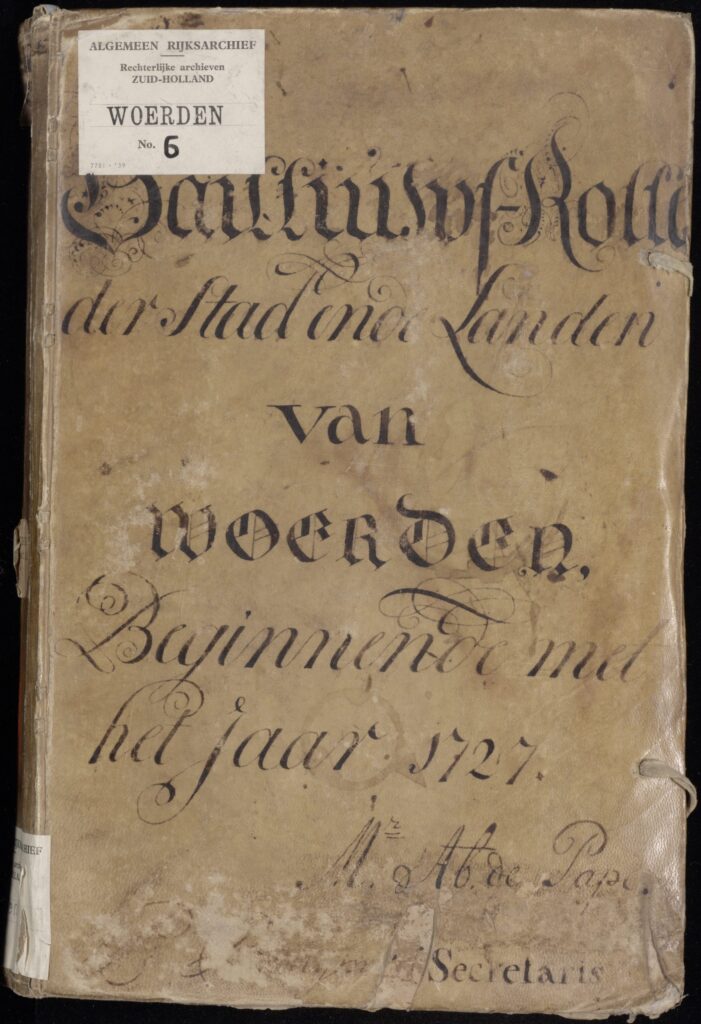 ALGEMEEN RIJKSARCHIEF
Rechterlijke archieven
ZUID-HOLLAND
WOERDEN
No. 6
Bailliuws-Rolle
der Stad ende Landen
van
WOERDEN,
Beginnende met
het Jaar 1727.
Mr. Ab. de Pape.
Secretaris